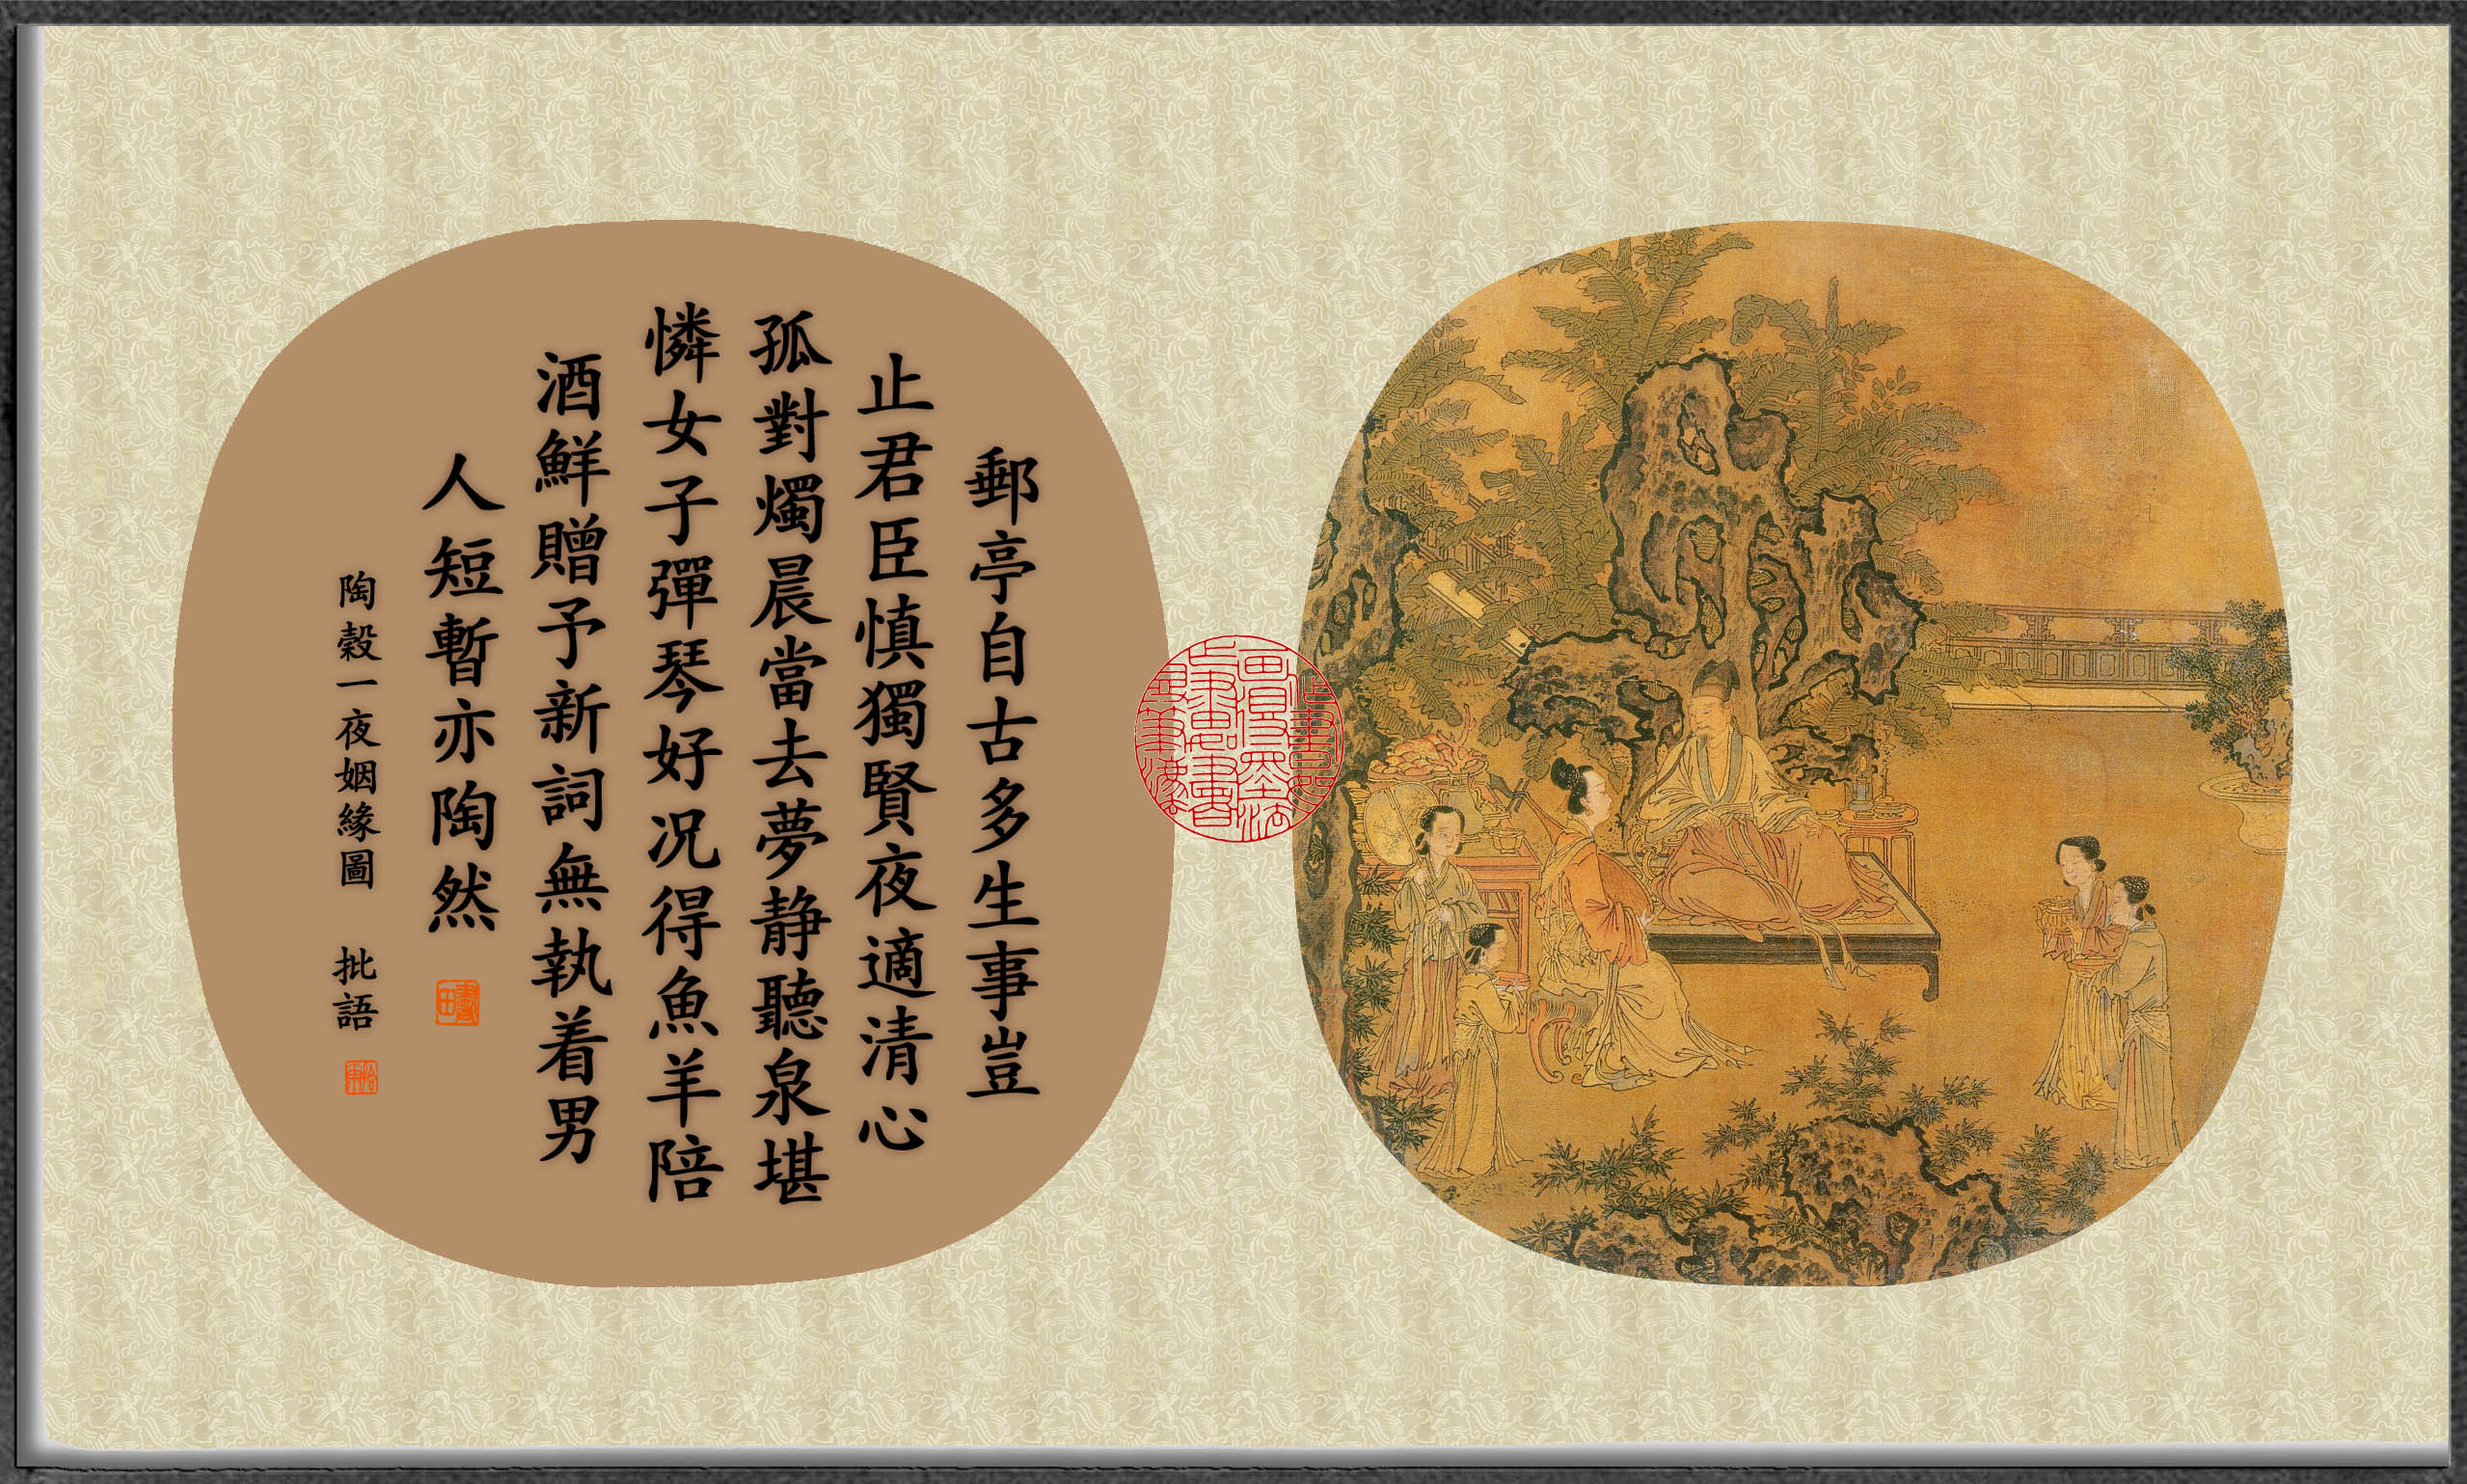 郵亭自古多生事豈
止君臣慎獨賢夜適清心
孤對燭晨當去夢静聽泉堪
憐女子彈琴好况得魚羊陪
酒鮮贈予新詞無執着男
人短暫亦陶然
陶穀一夜姻緣圖 批語